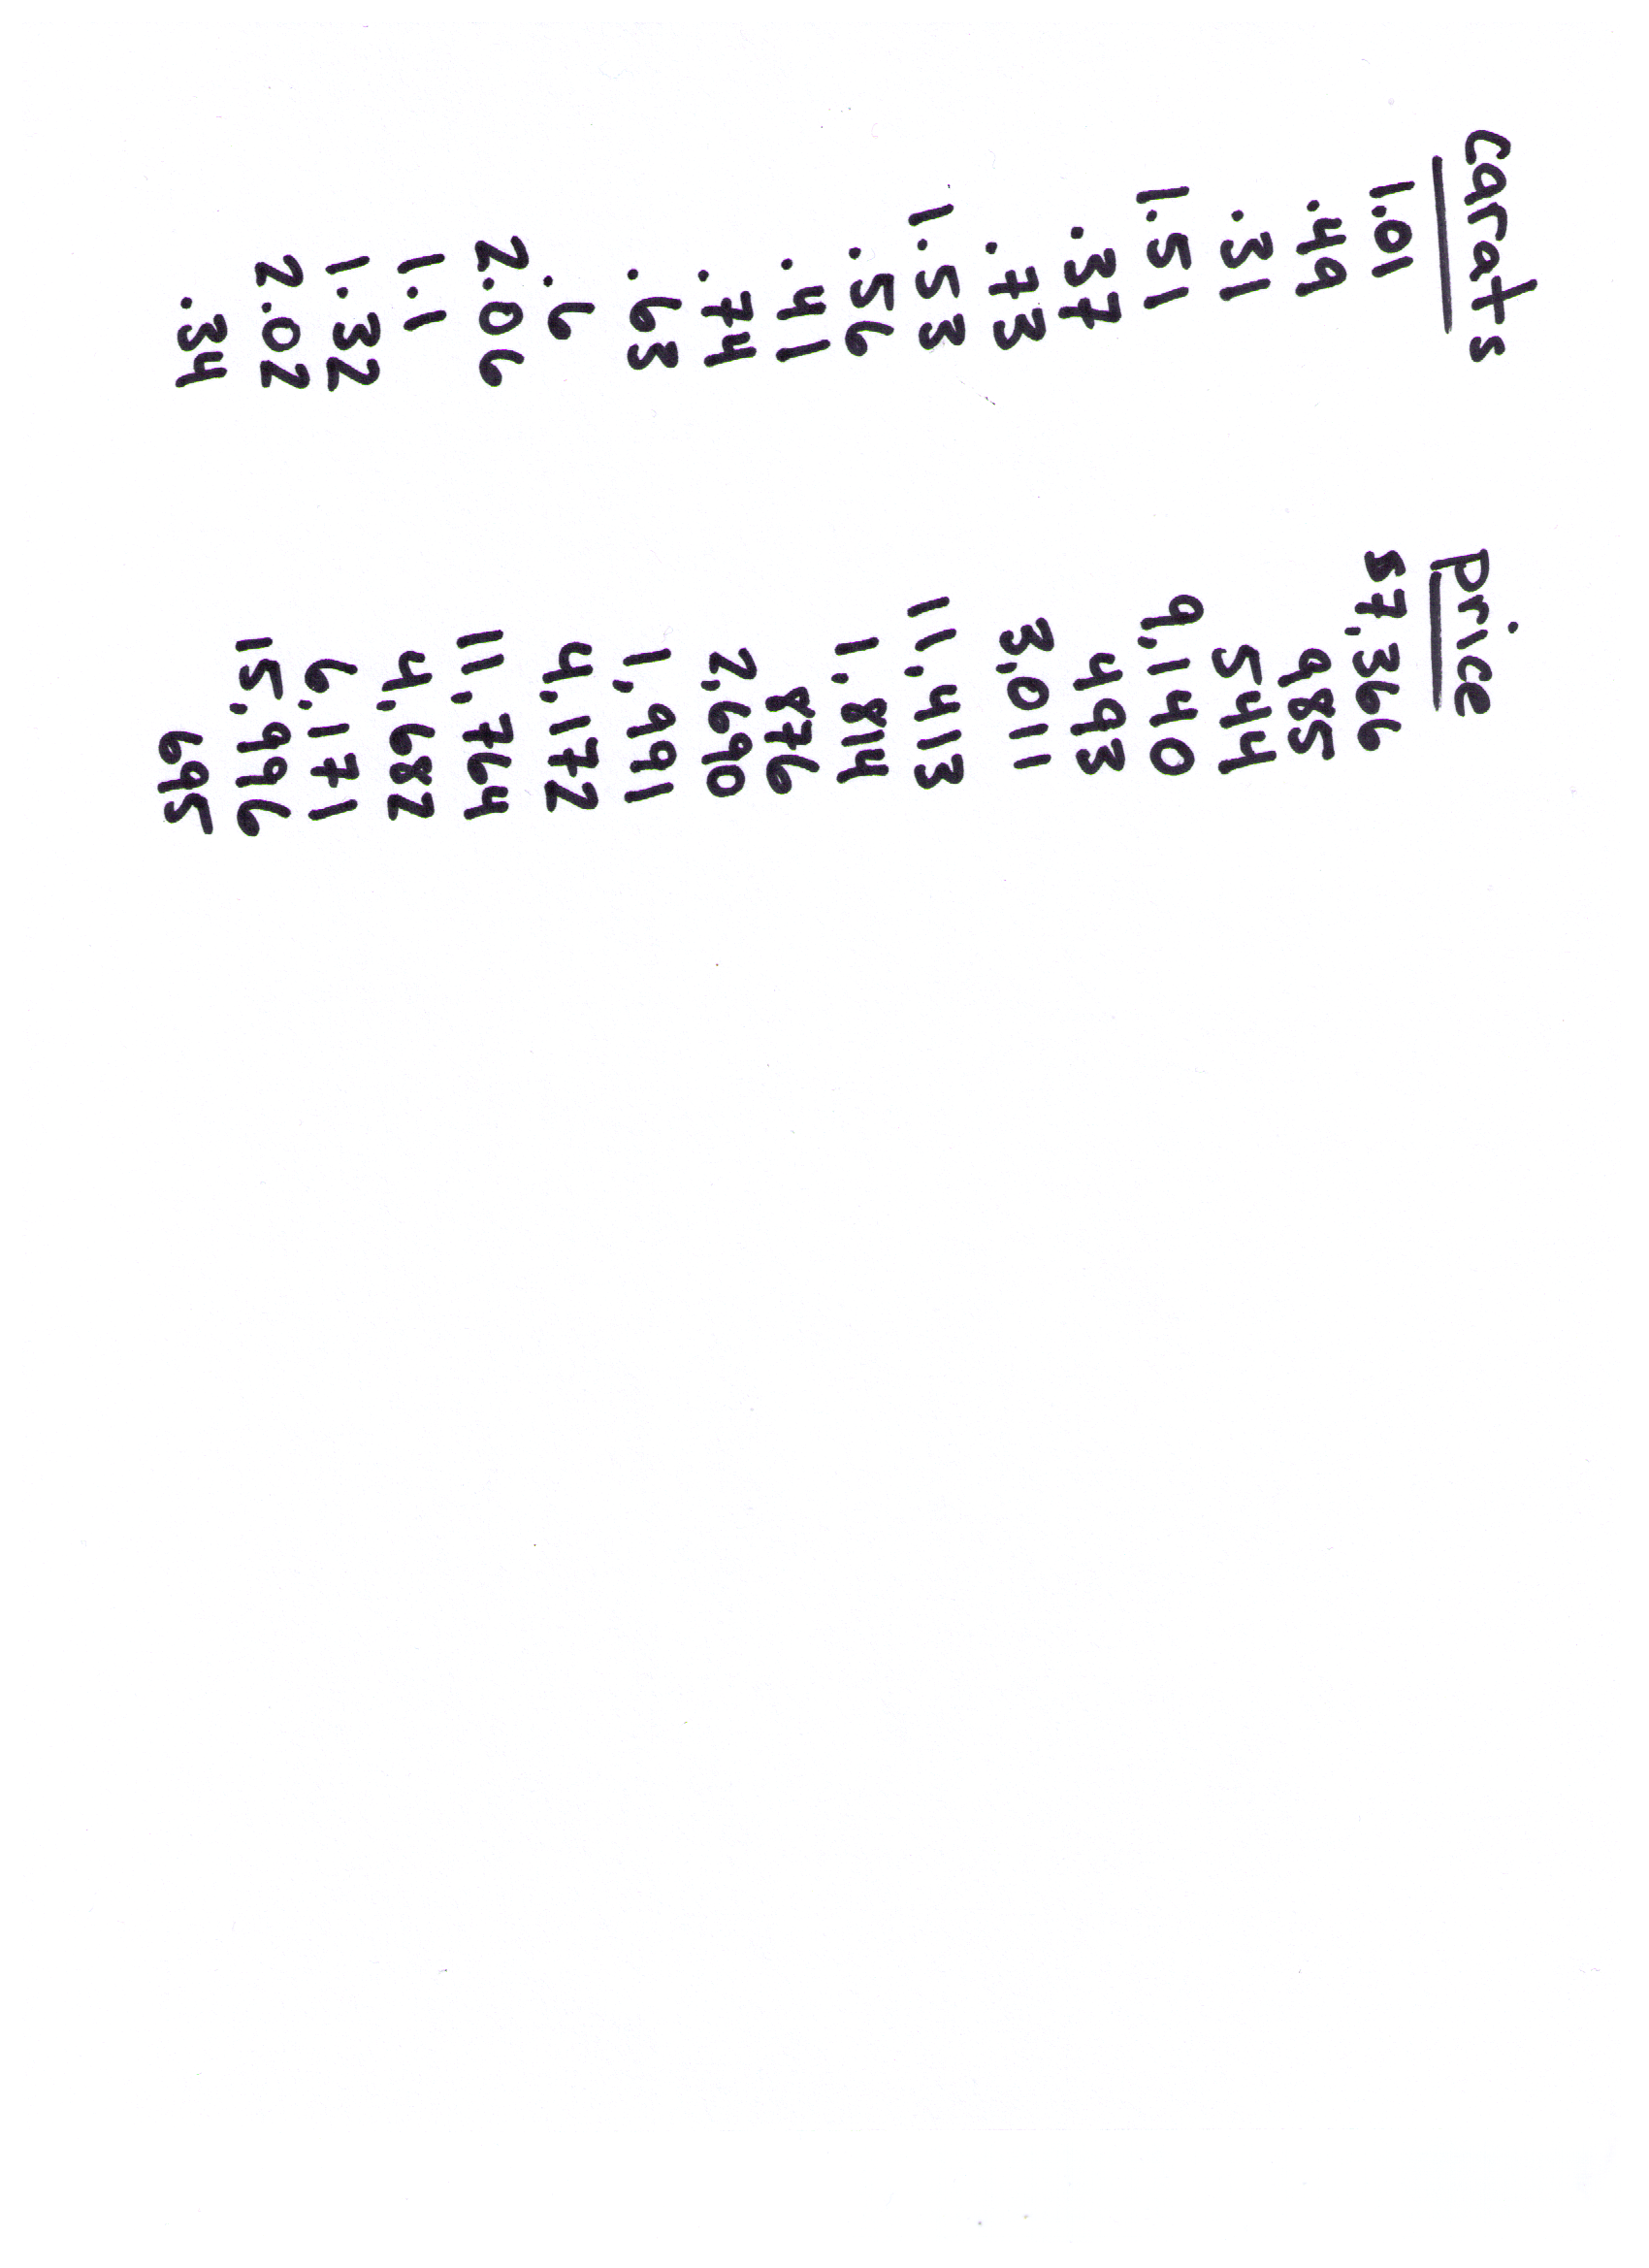 carats price
1.01 57,366
.49 985
.31 544
1.51 9,140
.37 493
.73 3,011
1.53 11,413
.56 1,814
.41 876
.74 2,690
.63 1,991
.6 4,172
2.06 11,764
1.1 4,682
1.32 6,171
2.02 15,996
.34 695